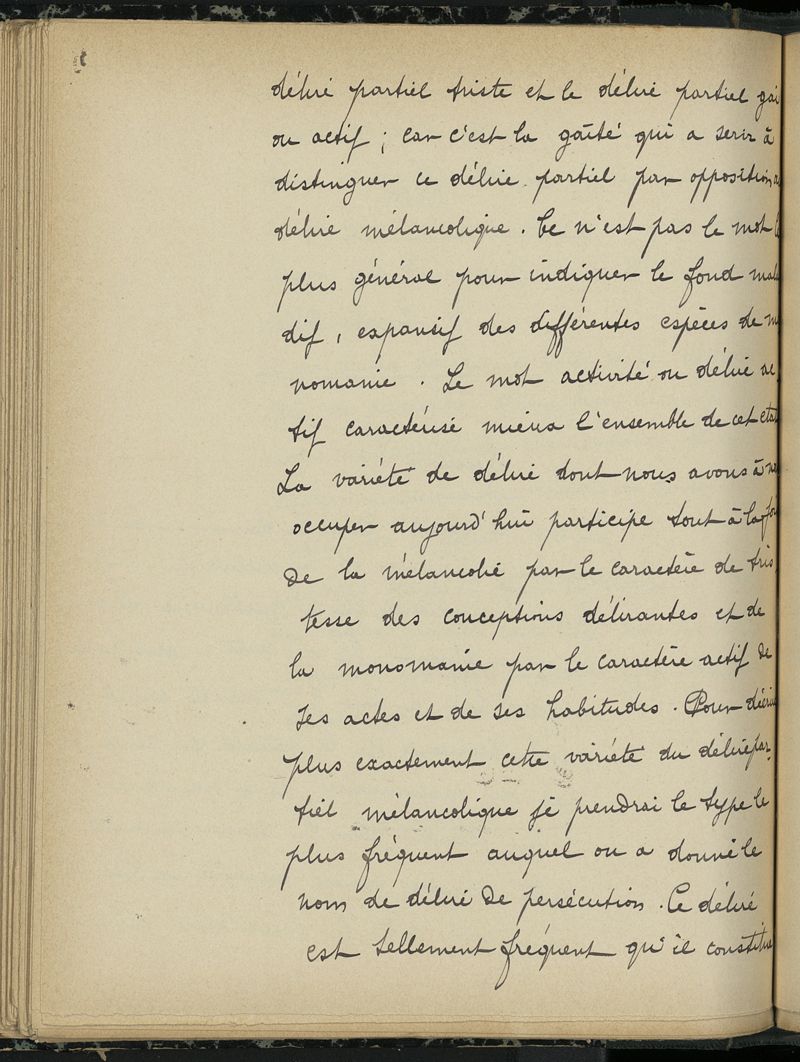 délire partiel triste et le délire partiel gai
ou actif ; car c'est la gaîté qui a servi à
distinguer ce délire partiel par opposition a
délire mélancolique. Ce n'est pas le mot l
plus général pour indiquer le fond mala
dif, expansif des différentes espèces de m
nomanie. Le mot activité ou délire ac
tif caractérise mieux l'ensemble de cet état
La variété de délire dont nous avons à no
occuper aujourd'hui participe tout à la foi
de la mélancolie par le caractère de tris
tesse des conceptions délirantes et de
la monomanie par le caractère actif de
ses actes et de ses habitudes. Pour décrire
plus exactement cette variété du délire par-
tiel mélancolique je prendrai le type le
plus fréquent auquel on a donné le
nom de délire de persécution. Ce délire
est tellement fréquent qu'il constitue